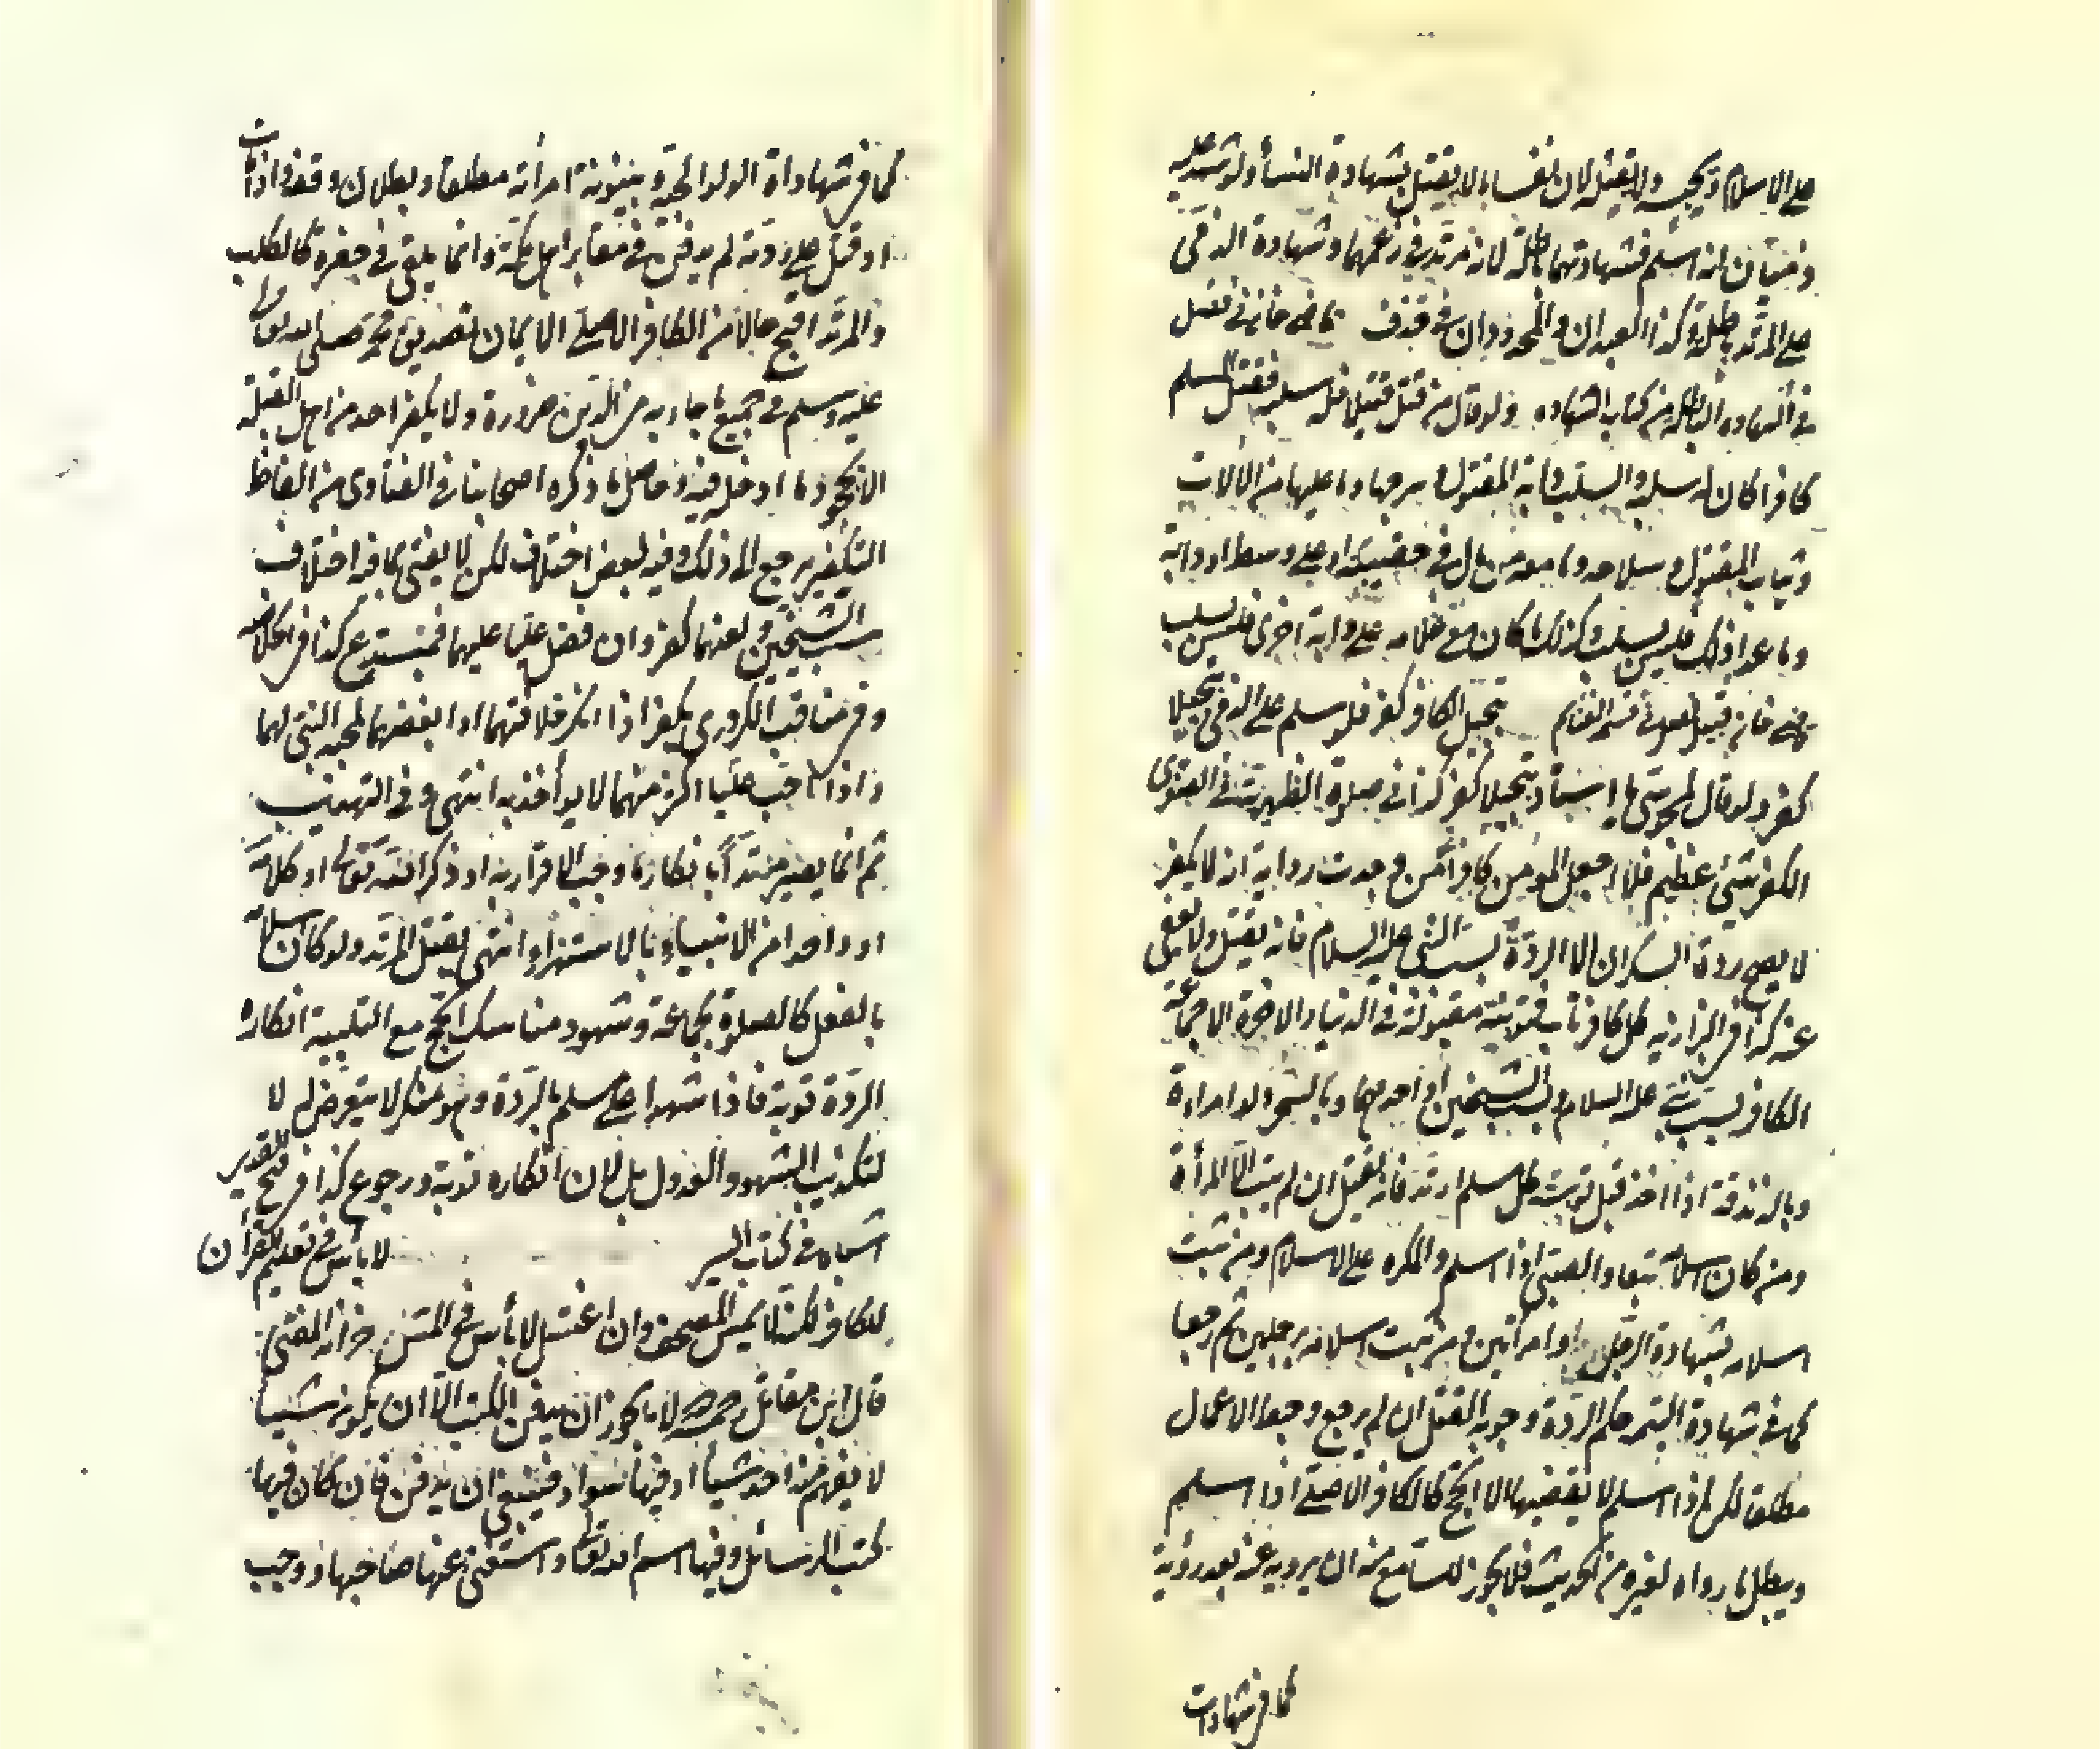 على الاسلام ويحبس ولا يقتل لان نفسا ما لا يقتل بشهادة النسأ ولو شهد عليه
ذميان انه اسلم فشهادتهما باطلة لانه مرتد في زعمهما وشهادة الذمى
على المرتد باطلة وكذا العبدان والمحدودان في قذف قاضى خان فى فصل
فى الشهادة الباطلة من كتاب الشهاده ولو قال من قتل قتيلا فله سلبه فقتل المسلم
كافرا كان له سلبه والسلب دابة المقتول بسرجها وما عليها من الآلات
وثياب المقتول وسلاحه وما معه من مال فى حقيبته او على وسطه او دابته
وما عدا ذلك فليس بسلب وكذلك ما كان مع غلامه على دابة اخرى فليس بسلب
قاضى خان قبيل فصل فى قسم الغنائم تبجيل الكافر كفر فلو سلم على الذمى تبجيلا
كفر ولو قال لمجوسى يا استاد تبجيلا كفر كذا فى صلوة الظهيرية فى الصغرى
الكفر شئ عظيم فلا اجعل المؤمن كافرا متى وجدت رواية انه لا يكفر
لا يصح ردة السكران الا الردة بسب النبى عليه السلام فانه يقتل ولا يعفى
عنه كذا فى البزازيه كل كافر تاب فتوبته مقبولة فى الدنيا والاخرة الا جماعة
الكافر بسب نبى عليه السلام وبسب الشيخين او احدهما وبالسحر ولو امراءة
وبالزندقة اذا اخذ قبل توبته كل مسلم ارتد فانه يقتل ان لم يتب الا المرأة
ومن كان اسلامه تبعا والصبى اذا اسلم والمكره على الاسلام ومن ثبت
اسلامه بشهادة الرجل وامرأتين ومن ثبت اسلامه برجلين ثم رجعا
كما فى شهادة اليتيمة حكم الردة وجوب القتل ان لم يرجع وحبط الاعمال
مطلقا لكن اذا اسلم لا يقضيها الا الحج كالكافر الاصلى اذا اسلم
ويبطل ما رواه لغيره من الحديث فلا يجوز للسامع منه ان يرويه عنه بعد ردته
كما فى شهادات
كما فى شهادات الولوالجية وبينونة امرأته مطلقا وبطلان وقفه واذا مات
او قتل على ردته لم يدفن فى مقابر اهل ملة وانما يلقى فى حفرة كالكلب
والمرتد اقبح حالا من الكافر الاصلى الايمان تصديق محمد صلى الله تعالى
عليه وسلم فى جميع ما جاء به من الدين ضرورة ولا يكفر احد من اهل القبلة
الا بجحود ما ادخله فيه وحاصل ما ذكره اصحابنا فى الفتاوى من الفاظ
التكفير يرجع الى ذلك وفيه بعض اختلاف لكن لا يفتى بما فيه اختلاف
سب الشيخين ولعنهما كفر وان فضل عليا عليهما فمبتدع كذا فى الخلاصه
وفى مناقب الكردرى يكفر اذا انكر خلافتهما او ابغضهما لمحبة النبى لهما
واذا احب عليا اكثر منهما لا يؤاخذ به انتهى وفى التهذيب
ثم انما يصير مرتدا بانكار ما وجب الاقرار به او ذكر الله تعالى او كلامه
او واحدا من الانبياء بالاستهزاء انتهى يقتل المرتد ولو كان اسلامه
بالفعل كالصلوة بجماعة وشهود مناسك الحج مع التلبية انكاره
الردة توبة فاذا شهدا على مسلم بالردة وهو منكر لا يتعرض له لا
لتكذيب الشهود والعدول بل لان انكاره توبة ورجوع كذا فى فتح القدير
اشباه فى كتاب السير لا بأس فى تعليم القرآن
للكافر لكنه لا يمس المصحف وان اغتسل لا بأس فى المس خزانه المفتى
قال ابن مقاتل رحمه الله لا يجوز ان يدفن الكتب الا ان يكون شيئا
لا يفهم منه احد شيأ او فيها سواد فينبغى ان يدفن فان كان فيها
كتب الرسائل وفيها اسم الله تعالى واستغنى عنها صاحبها ووجب